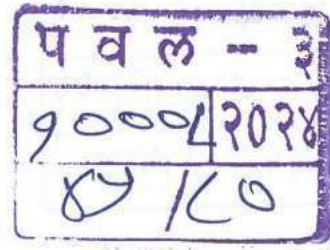 प व ल - ३
१०००८ २०२४
४५ / ८०